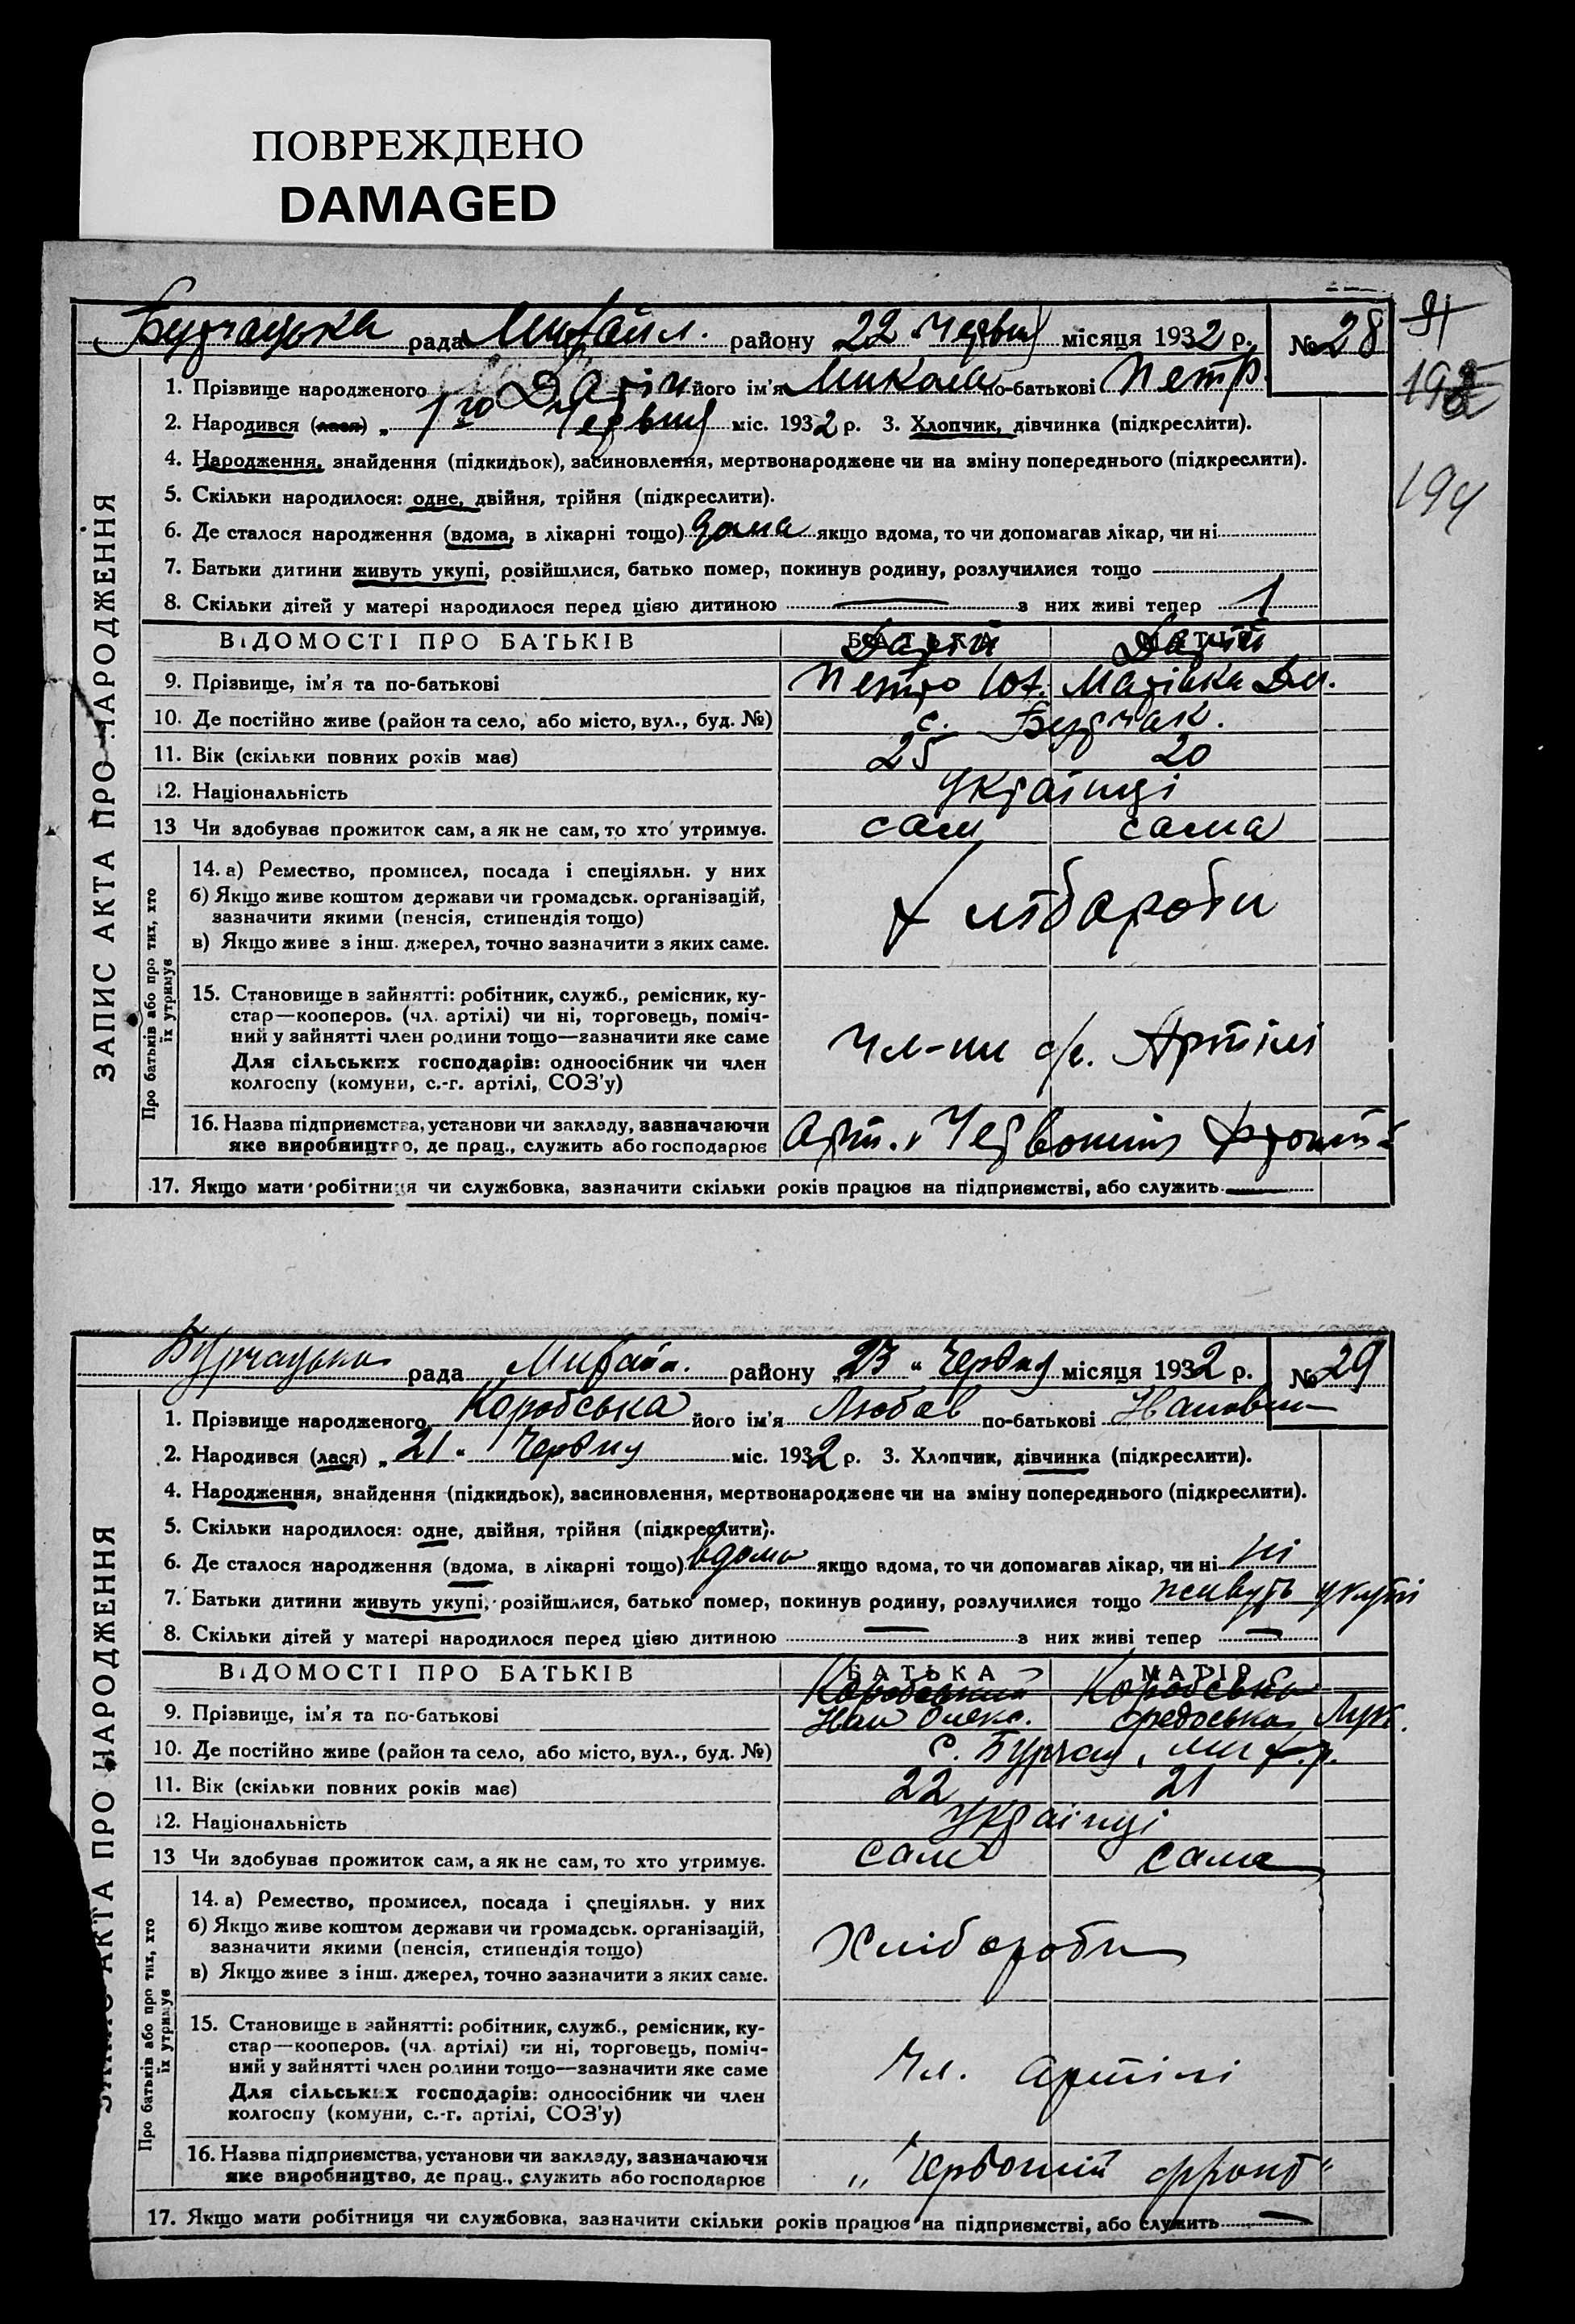 ПОВРЕЖДЕНО
DAMAGED
Бурчацька рада Михайл. району 22 Червня місяця 1932 р. № 28
91
192
194
ЗАПИС АКТА ПРО НАРОДЖЕННЯ
1. Прізвище народженого його ім'я Микола по-батькові Петр.
2. Народився (лася) „ 1го Червня міс. 1932 р. 3. Хлопчик, дівчинка (підкреслити).
4. Народження, знайдення (підкидьок), засиновлення, мертвонароджене чи на зміну попереднього (підкреслити).
5. Скільки народилося: одне, двійня, трійня (підкреслити).
6. Де сталося народження (вдома, в лікарні тощо) дома якщо вдома, то чи допомагав лікар, чи ні
7. Батьки дитини живуть укупі, розійшлися, батько помер, покинув родину, розлучилися тощо
8. Скільки дітей у матері народилося перед цією дитиною — з них живі тепер 1
ВІДОМОСТІ ПРО БАТЬКІВ БАТЬКА МАТІР
9. Прізвище, ім'я та по-батькові Петро
10. Де постійно живе (район та село, або місто, вул., буд. №) с. Бурчак.
11. Вік (скільки повних років має) 25 20
12. Національність Українці
13 Чи здобуває прожиток сам, а як не сам, то хто утримує. сам сама
Про батьків або про тих, хто їх утримує
14. а) Ремество, промисел, посада і спеціяльн. у них
б) Якщо живе коштом держави чи громадськ. організацій,
зазначити якими (пенсія, стипендія тощо)
в) Якщо живе з інш. джерел, точно зазначити з яких саме.
Хлібороби
15. Становище в зайнятті: робітник, служб., ремісник, ку-
стар—кооперов. (чл. артілі) чи ні, торговець, поміч-
ний у зайнятті член родини тощо—зазначити яке саме
Для сільських господарів: одноосібник чи член
колгоспу (комуни, с.-г. артілі, СОЗ'у)
Чл-ни с/г. Артілі
16. Назва підприємства, установи чи закладу, зазначаючи
яке виробництво, де прац., служить або господарює
Арт. „Червоний Фронт"
17. Якщо мати робітниця чи службовка, зазначити скільки років працює на підприємстві, або служить —
Бурчацька рада Михайл. району „23" Червня місяця 1932 р. № 29
ЗАПИС АКТА ПРО НАРОДЖЕННЯ
1. Прізвище народженого Коробська його ім'я Любов по-батькові Ивановна
2. Народився (лася) „21" Червня міс. 1932 р. 3. Хлопчик, дівчинка (підкреслити).
4. Народження, знайдення (підкидьок), засиновлення, мертвонароджене чи на зміну попереднього (підкреслити).
5. Скільки народилося: одне, двійня, трійня (підкреслити).
6. Де сталося народження (вдома, в лікарні тощо) вдома якщо вдома, то чи допомагав лікар, чи ні ні
7. Батьки дитини живуть укупі, розійшлися, батько помер, покинув родину, розлучилися тощо живуть укупі
8. Скільки дітей у матері народилося перед цією дитиною — з них живі тепер —
ВІДОМОСТІ ПРО БАТЬКІВ БАТЬКА МАТІР
Коробський Коробська
9. Прізвище, ім'я та по-батькові Иван Олекс.
10. Де постійно живе (район та село, або місто, вул., буд. №) с. Бурчак, Мих. р.
11. Вік (скільки повних років має) 22 21
12. Національність Українці
13 Чи здобуває прожиток сам, а як не сам, то хто утримує. сам сама
Про батьків або про тих, хто їх утримує
14. а) Ремество, промисел, посада і спеціяльн. у них
б) Якщо живе коштом держави чи громадськ. організацій,
зазначити якими (пенсія, стипендія тощо)
в) Якщо живе з інш. джерел, точно зазначити з яких саме.
Хлібороби
15. Становище в зайнятті: робітник, служб., ремісник, ку-
стар—кооперов. (чл. артілі) чи ні, торговець, поміч-
ний у зайнятті член родини тощо—зазначити яке саме
Для сільських господарів: одноосібник чи член
колгоспу (комуни, с.-г. артілі, СОЗ'у)
Чл. артілі
16. Назва підприємства, установи чи закладу, зазначаючи
яке виробництво, де прац., служить або господарює
„Червоний фронт"
17. Якщо мати робітниця чи службовка, зазначити скільки років працює на підприємстві, або служить —